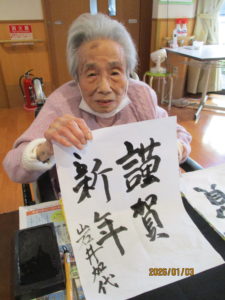 謹賀
新年
岩井加代
2026/01/03